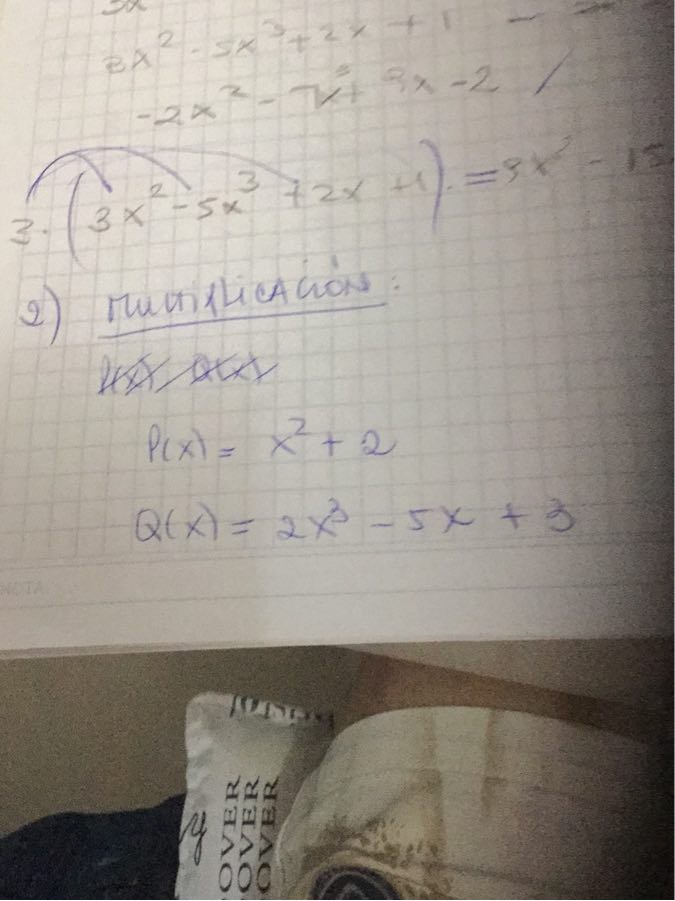 3x
3x² - 5x³ + 2x + 1 -
-2x² - 7x³ + 9x - 2 /
3. (3x² - 5x³ + 2x + 1). = 9x² - 15
2) MULTIPLICACIÓN:
P(x) = x² + 2
Q(x) = 2x³ - 5x + 3
NOTA
y
COVER
COVER
COVER